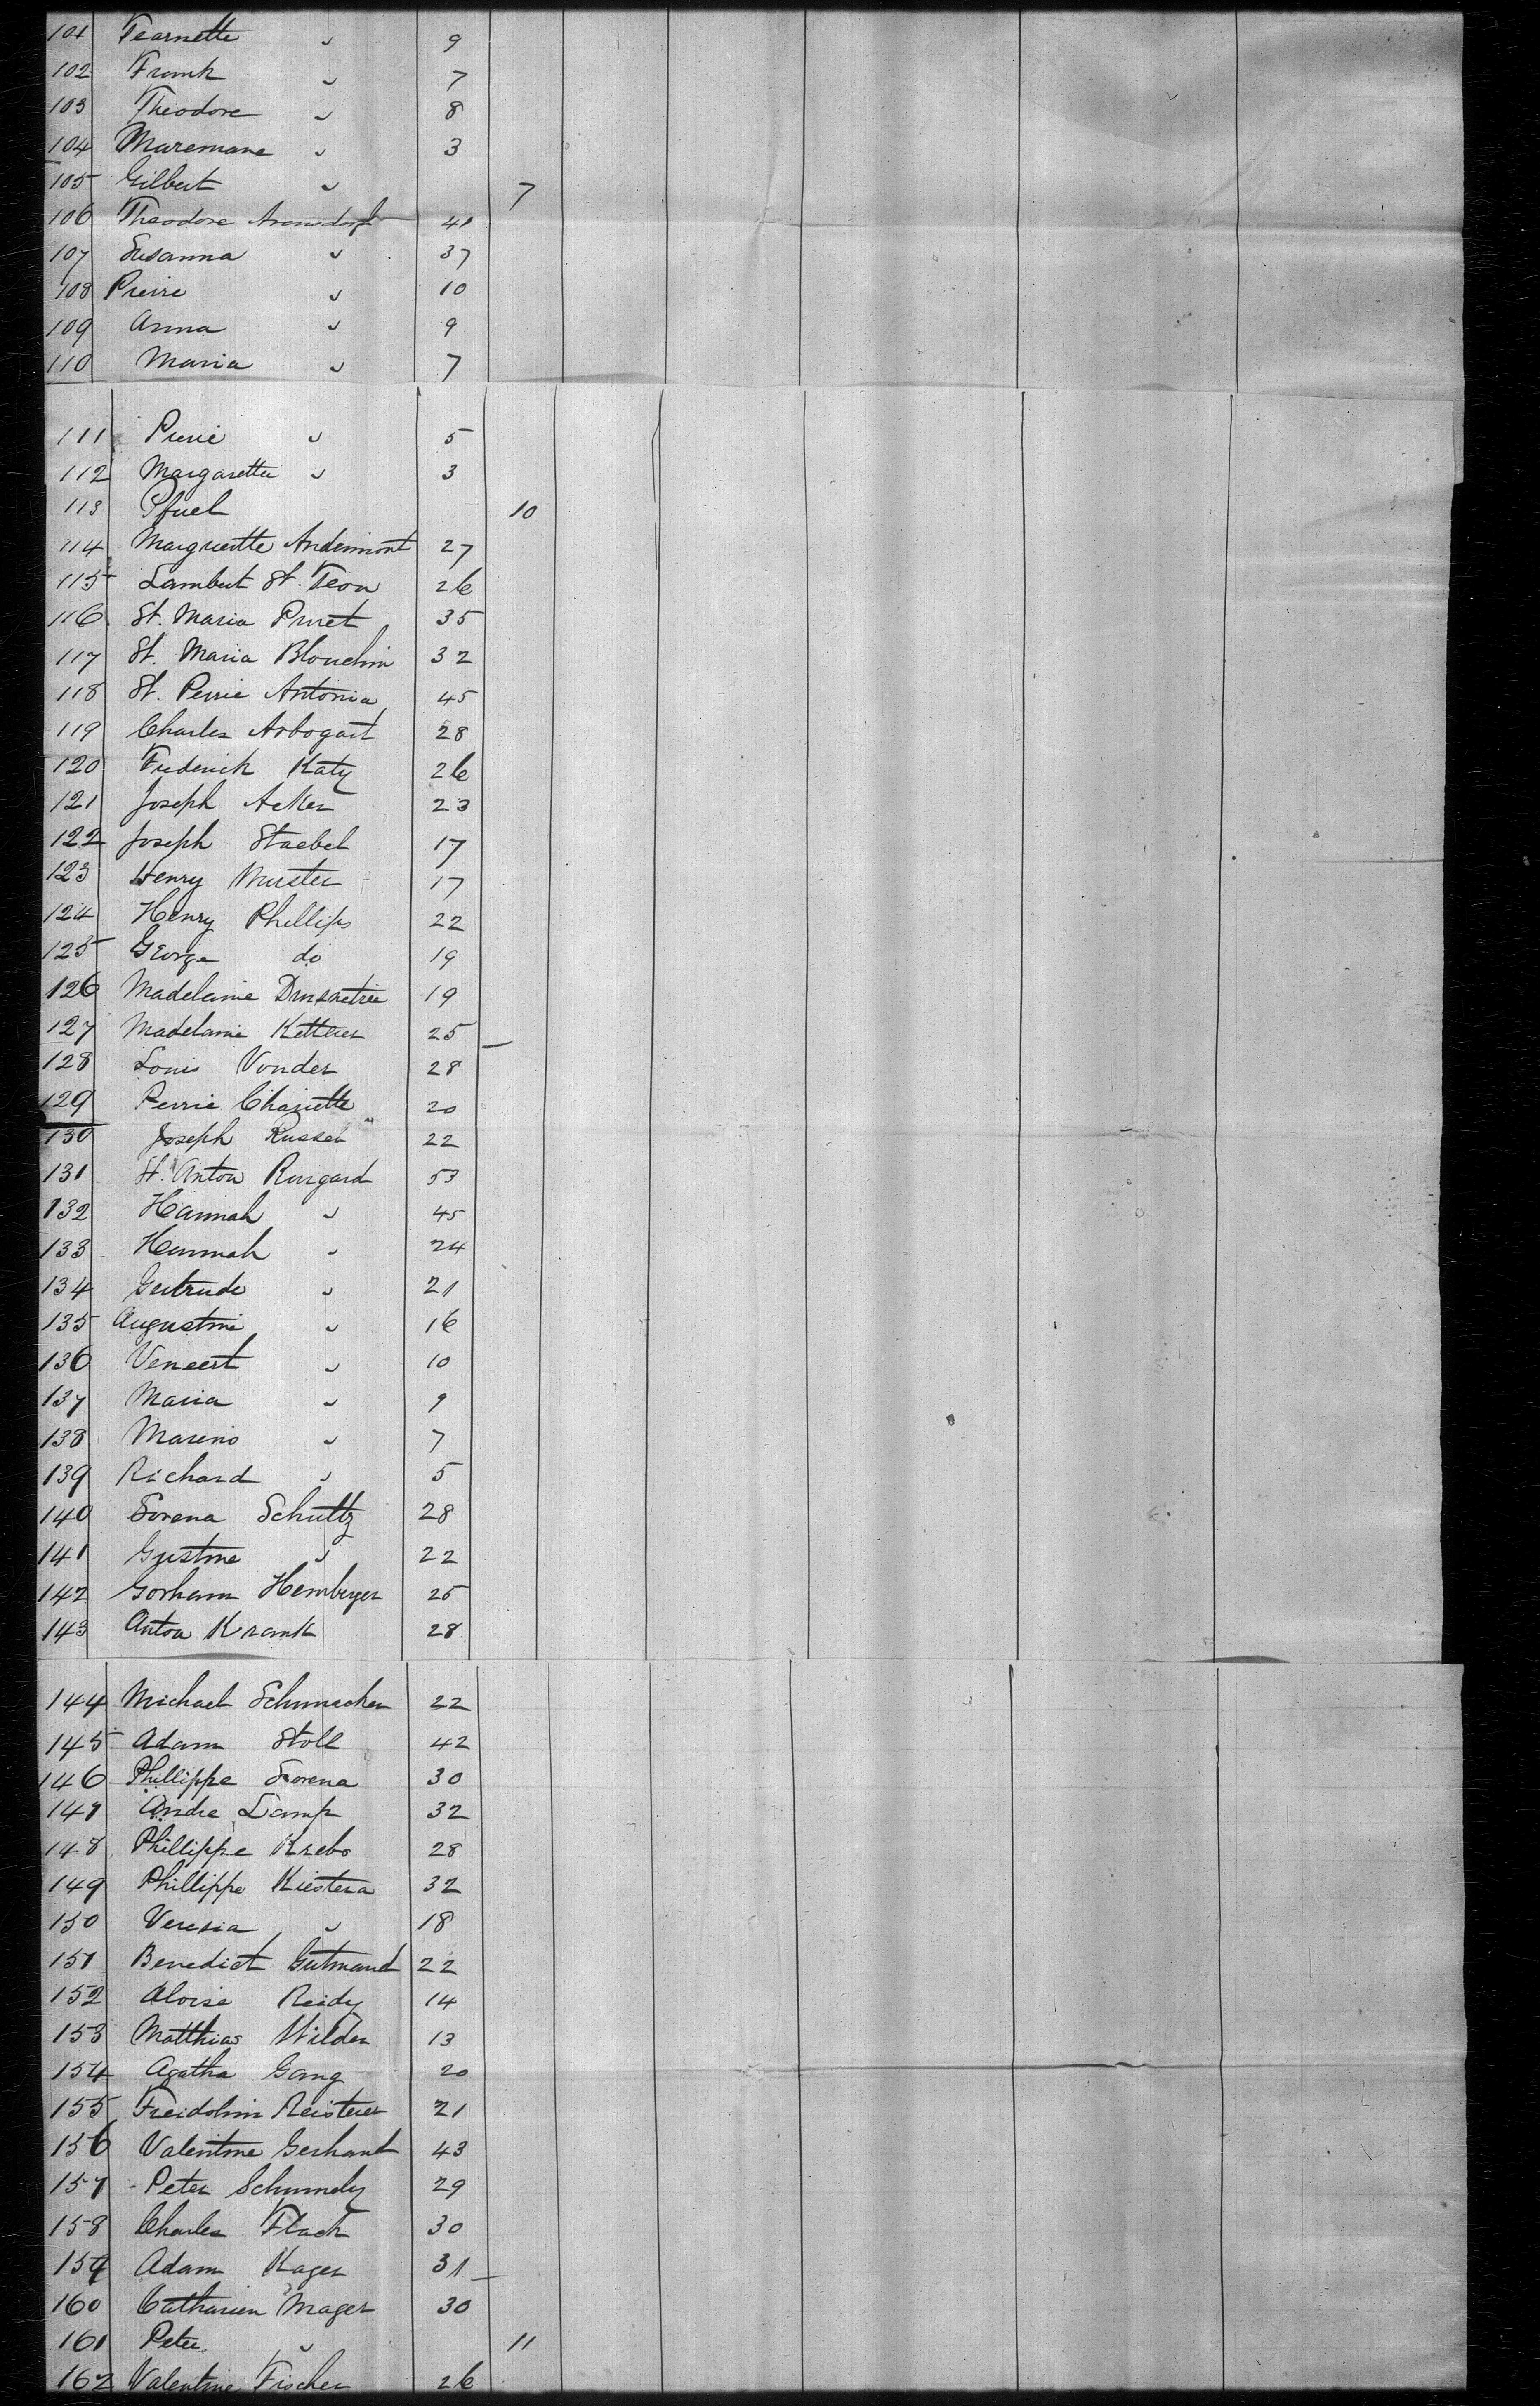 101 Fearnette " 9
102 Frank " 7
103 Theodore " 8
104 Maremane " 3
105 Gilbert " 7
106 Theodore Arensdorf 41
107 Susanna " 37
108 Pierre " 10
109 Anna " 9
110 Maria " 7
111 Pierre " 5
112 Margaretta " 3
113 Pfuel 10
114 Margueritte Andermont 27
115 Lambert St. Teon 26
116 St. Maria Pruet 35
117 St. Maria Blouchin 32
118 St. Perrie Antonia 45
119 Charles Arbogast 28
120 Frederick Katz 26
121 Joseph Acker 23
122 Joseph Staebel 17
123 Henry Murster 17
124 Henry Phillips 22
125 George do 19
126 Madelaine 19
127 Madelanie Ketterer 25
128 Louis Vonder 28
129 Perrie Chariette 20
130 Joseph Russel 22
131 St. Anton Rungard 53
132 Hannah " 45
133 Hannah " 24
134 Gertrude " 21
135 Augustine " 16
136 Veneert " 10
137 Maria " 9
138 Mareno " 7
139 Richard " 5
140 Lorena Schultz 28
141 Gustine " 22
142 Gorham Hemberger 25
143 Anton Krank 28
144 Michael Schumacher 22
145 Adam Stoll 42
146 Phillippe Lorena 30
147 Andre Lamp 32
148 Phillippe Krebs 28
149 Phillippe Kiestera 32
150 Veresia " 18
151 Benedict Gutmand 22
152 Aloise Reidy 14
153 Matthias Wilder 13
154 Agatha Gang 20
155 Freidolin Reisterer 21
156 Valentine Gerhant 43
157 Peter Schumely 29
158 Charles Flach 30
159 Adam Kager 31
160 Catharien Mager 30
161 Peter " 11
162 Valentine Fischer 26